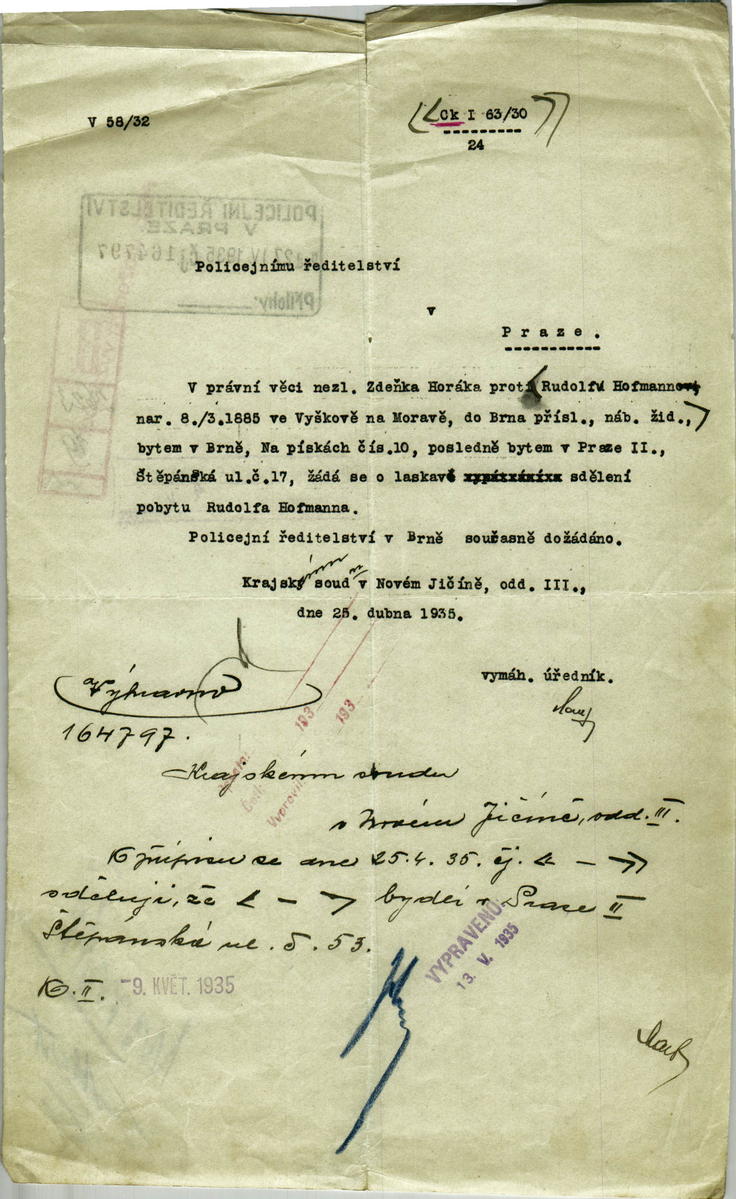 V 58/32
Ck I 63/30
24
POLICEJNÍ ŘEDITELSTVÍ
V PRAZE
27.IV.1935 164797
Přílohy:
Policejnímu ředitelství
v
Praze.
V právní věci nezl. Zdeňka Horáka proti Rudolfu Hofmannovi
nar. 8./3.1885 ve Vyškově na Moravě, do Brna přísl., náb. žid.,
bytem v Brně, Na pískách čís.10, posledně bytem v Praze II.,
Štěpánská ul.č.17, žádá se o laskavé sdělení
pobytu Rudolfa Hofmanna.
Policejní ředitelství v Brně současně dožádáno.
Krajský soud v Novém Jičíně, odd. III.,
dne 25. dubna 1935.
vymáh. úředník.
164797.
193
193
Krajskému soudu
v Novém Jičíně, odd. III.
K přípisu ze dne 25.4.35. čj. « — »
sděluji, že < — > bydlí v Praze II
Štěpánská ul. č. 53.
K. II. -9. KVĚT. 1935
VYPRAVENO
13. V. 1935